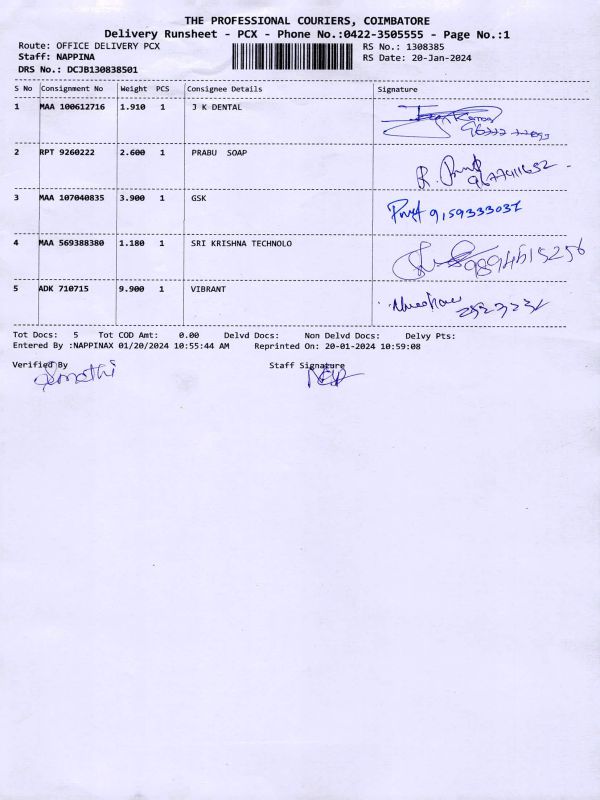 THE PROFESSIONAL COURIERS, COIMBATORE
Delivery Runsheet - PCX - Phone No.:0422-3505555 - Page No.:1
Route: OFFICE DELIVERY PCX RS No.: 1308385
Staff: NAPPINA RS Date: 20-Jan-2024
DRS No.: DCJB130838501
S No Consignment No Weight PCS Consignee Details Signature
1 MAA 100612716 1.910 1 J K DENTAL
2 RPT 9260222 2.600 1 PRABU SOAP R. 9677411652
3 MAA 107040835 3.900 1 GSK 9159333037
4 MAA 569388380 1.180 1 SRI KRISHNA TECHNOLO 9894615256
5 ADK 710715 9.900 1 VIBRANT
Tot Docs: 5 Tot COD Amt: 0.00 Delvd Docs: Non Delvd Docs: Delvy Pts:
Entered By :NAPPINAX 01/20/2024 10:55:44 AM Reprinted On: 20-01-2024 10:59:08
Verified By Staff Signature